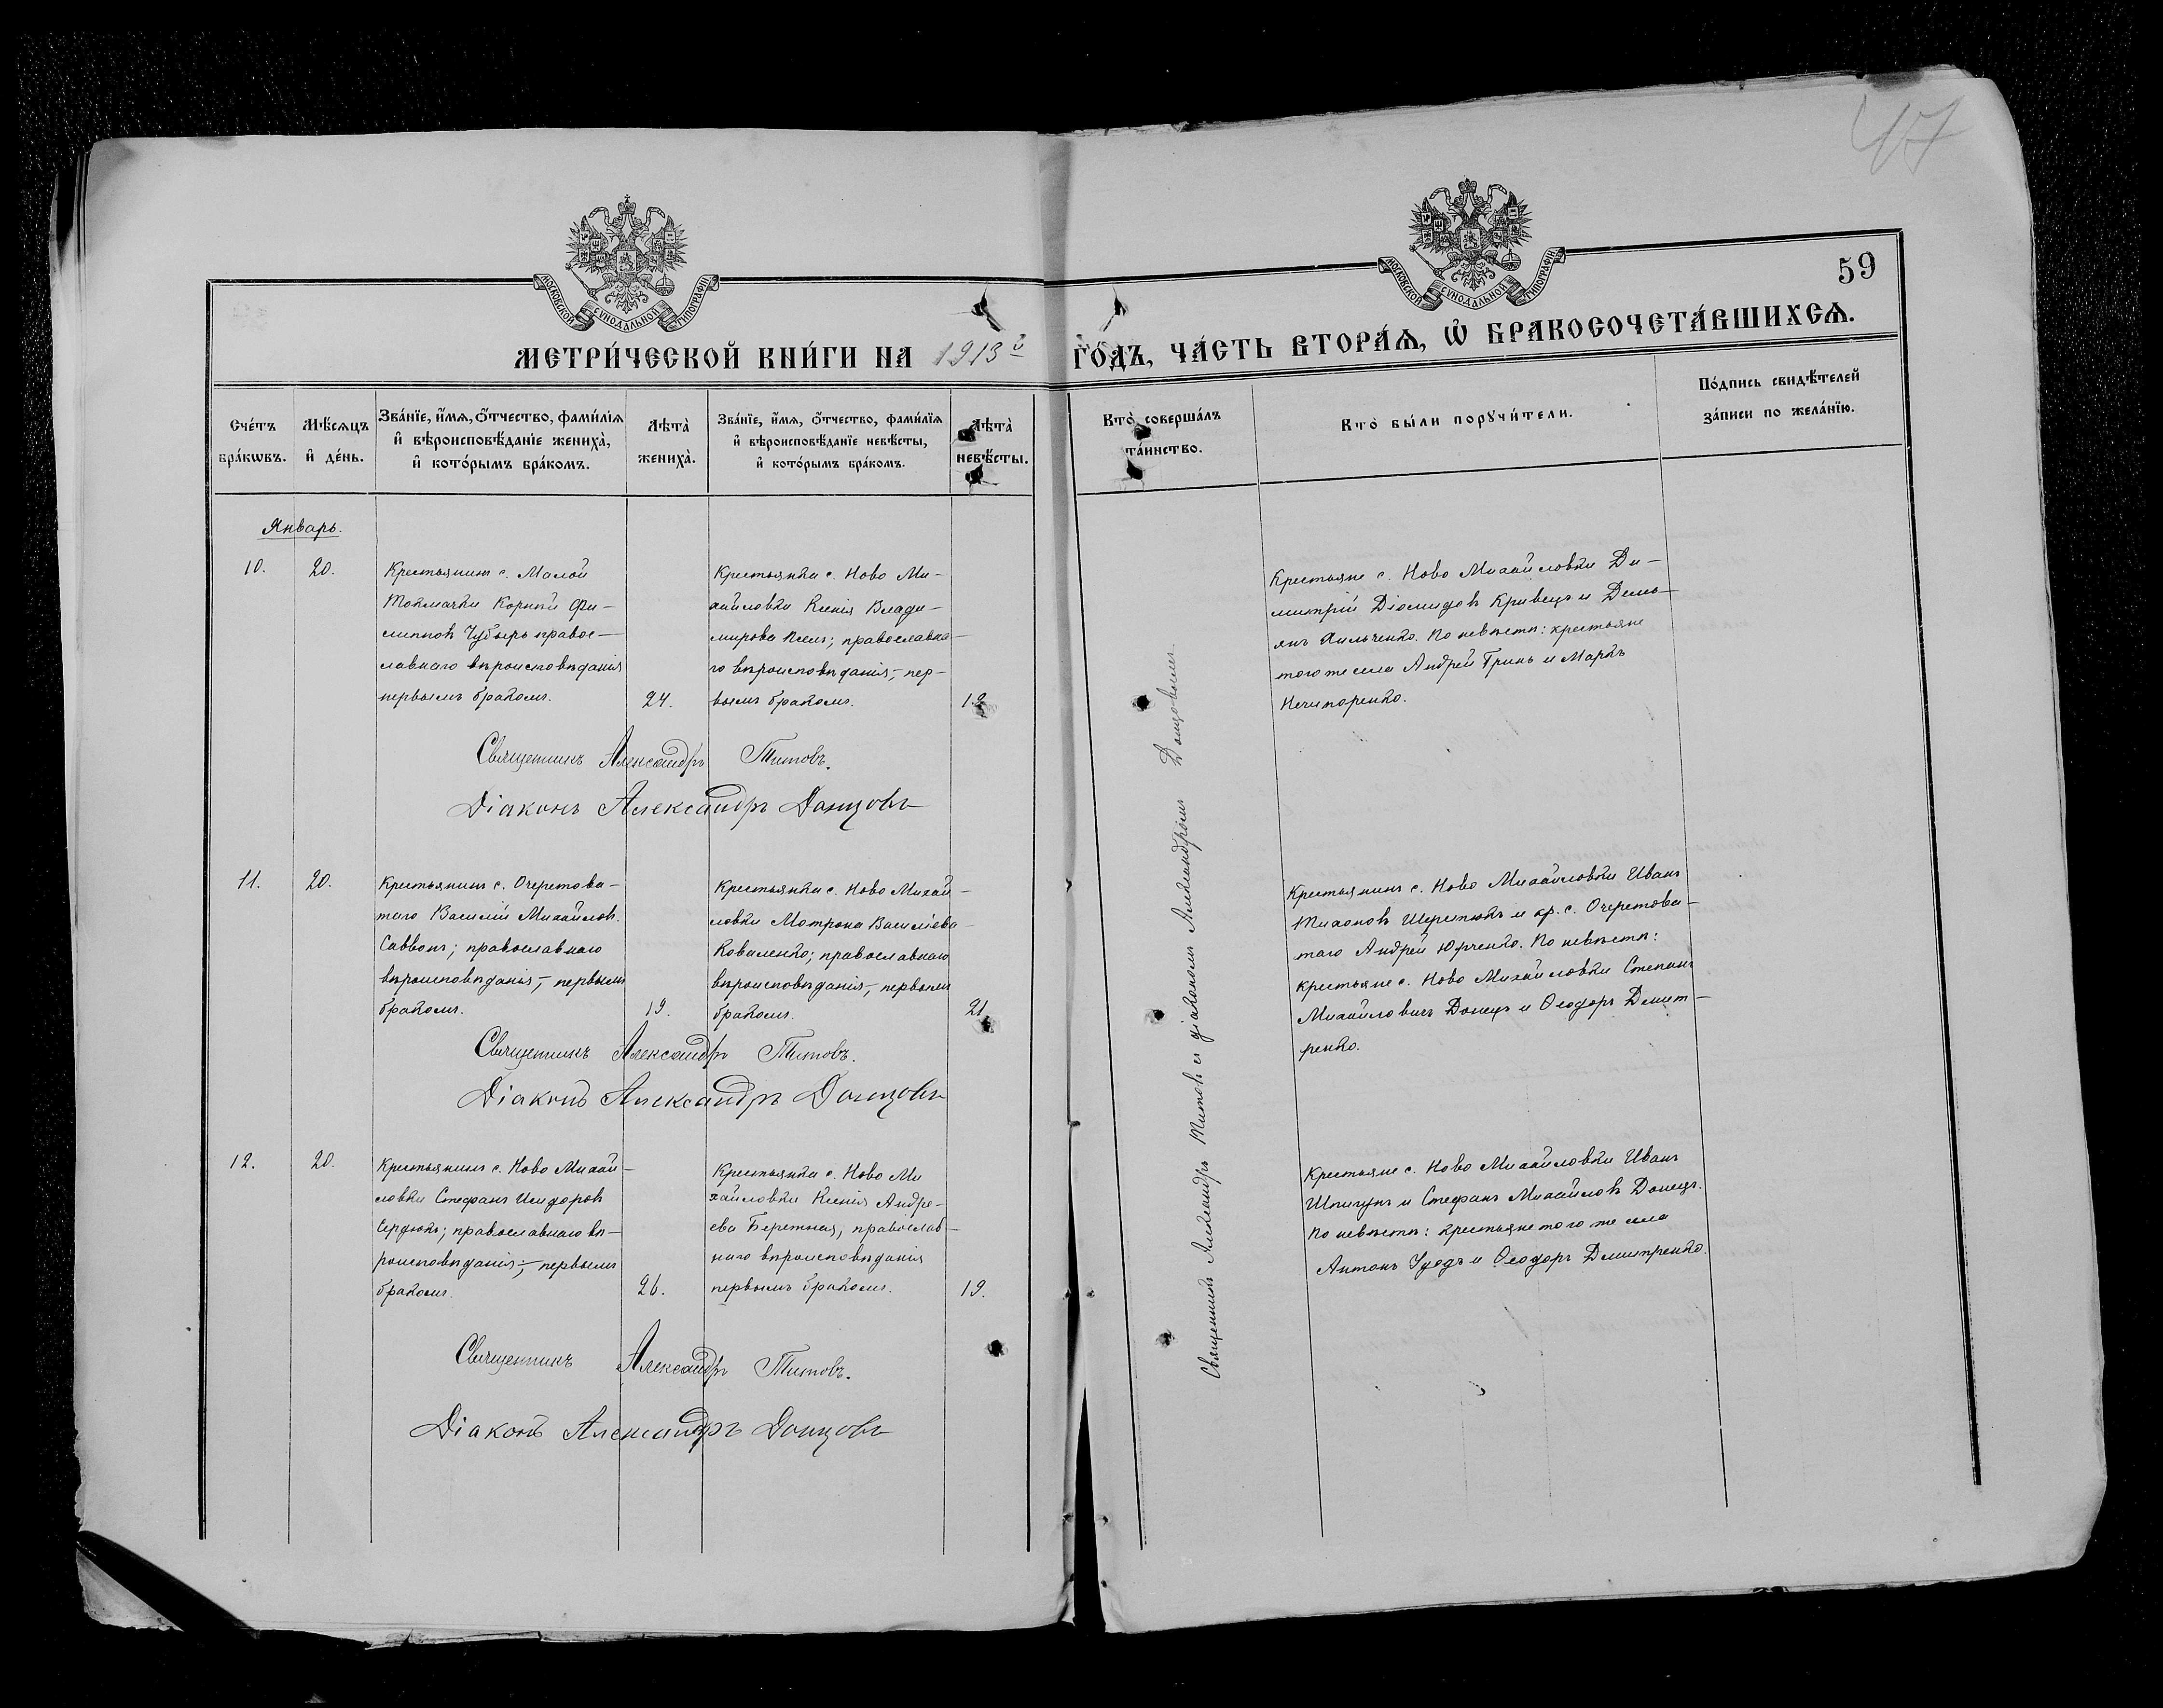 47
МОСКОВСКОЙ СѴНОДАЛЬНОЙ ТИПОГРАФІИ
МОСКОВСКОЙ СѴНОДАЛЬНОЙ ТИПОГРАФІИ
59
МЕТРИ́ЧЕСКОЙ КНИ́ГИ НА 1913й ГО́ДЪ, ЧА́СТЬ ВТОРА́Ѧ, Ѡ БРАКОСОЧЕТА́ВШИХСѦ.
Сче́тъ бра́кѡвъ.
Мѣ́сѧцъ и де́нь.
Зва́нїе, и́мѧ, о́тчество, фами́лїѧ
и вѣроисповѣ́данїе жениха̀,
и кото́рымъ бра́комъ.
Лѣта̀ жениха̀.
Зва́нїе, и́мѧ, о́тчество, фами́лїѧ
и вѣроисповѣ́данїе невѣ́сты,
и кото́рымъ бра́комъ.
Лѣта̀ невѣ́сты.
Кто̀ соверша́лъ та́инство.
Кто̀ бы́ли порꙋчи́тели.
По́дпись свидѣ́телей
за́писи по жела́нїю.
Январь.
10.
20.
Крестьянинъ с. Малой
Токмачки Корній Фи-
липповъ Чубырь православ-
лавнаго вѣроисповѣданія
первымъ бракомъ.
24.
Крестьянка с. Ново Ми-
хайловки Ксенія Влади-
мирова православна-
го вѣроисповѣданія,- пер-
вымъ бракомъ.
19
Крестьяне с. Ново Михайловки Ди-
митрій Діомидовъ Кривецъ и Демь-
янъ Хильченко. По невѣстѣ: крестьяне
того же села Андрей Гринь и Маркъ
Нечипоренко.
Священникъ Александръ Титовъ.
Діаконъ Александръ Донцовъ
11.
20.
Крестьянинъ с. Очеретова-
таго Василій Михайловъ
Саввонъ; православнаго
вѣроисповѣданія,- первымъ
бракомъ.
19.
Крестьянка с. Ново Михай-
ловки Матрона Васильева
Коваленко; православнаго
вѣроисповѣданія,- первымъ
бракомъ.
21
Крестьянинъ с. Ново Михайловки Иванъ
Тихоновъ Шерстюкъ и кр. с. Очеретова-
таго Андрей Юрченко. По невѣстѣ:
крестьяне с. Ново Михайловки Степанъ
Михайловичъ Донецъ и Ѳеодоръ Дмит-
ренко.
Священникъ Александръ Титовъ.
Діаконъ Александръ Донцовъ
12.
20.
Крестьянинъ с. Ново Михай-
ловки Стефанъ Исидоровъ
Сердюкъ; православнаго вѣ-
роисповѣданія;- первымъ
бракомъ.
26.
Крестьянка с. Ново Ми
хайловки Ксенія Андре-
ева Бережная, православ-
наго вѣроисповѣданія
первымъ бракомъ.
19.
Крестьяне с. Ново Михайловки Иванъ
Шпигунъ и Стефанъ Михайловъ Донецъ.
По невѣстѣ: крестьяне того же села
Антонъ Чуодъ и Ѳеодоръ Дмитренко.
Священникъ Александръ Титовъ.
Діаконъ Александръ Донцовъ
Священникъ Александръ Титовъ съ діакономъ Александромъ Донцовымъ.